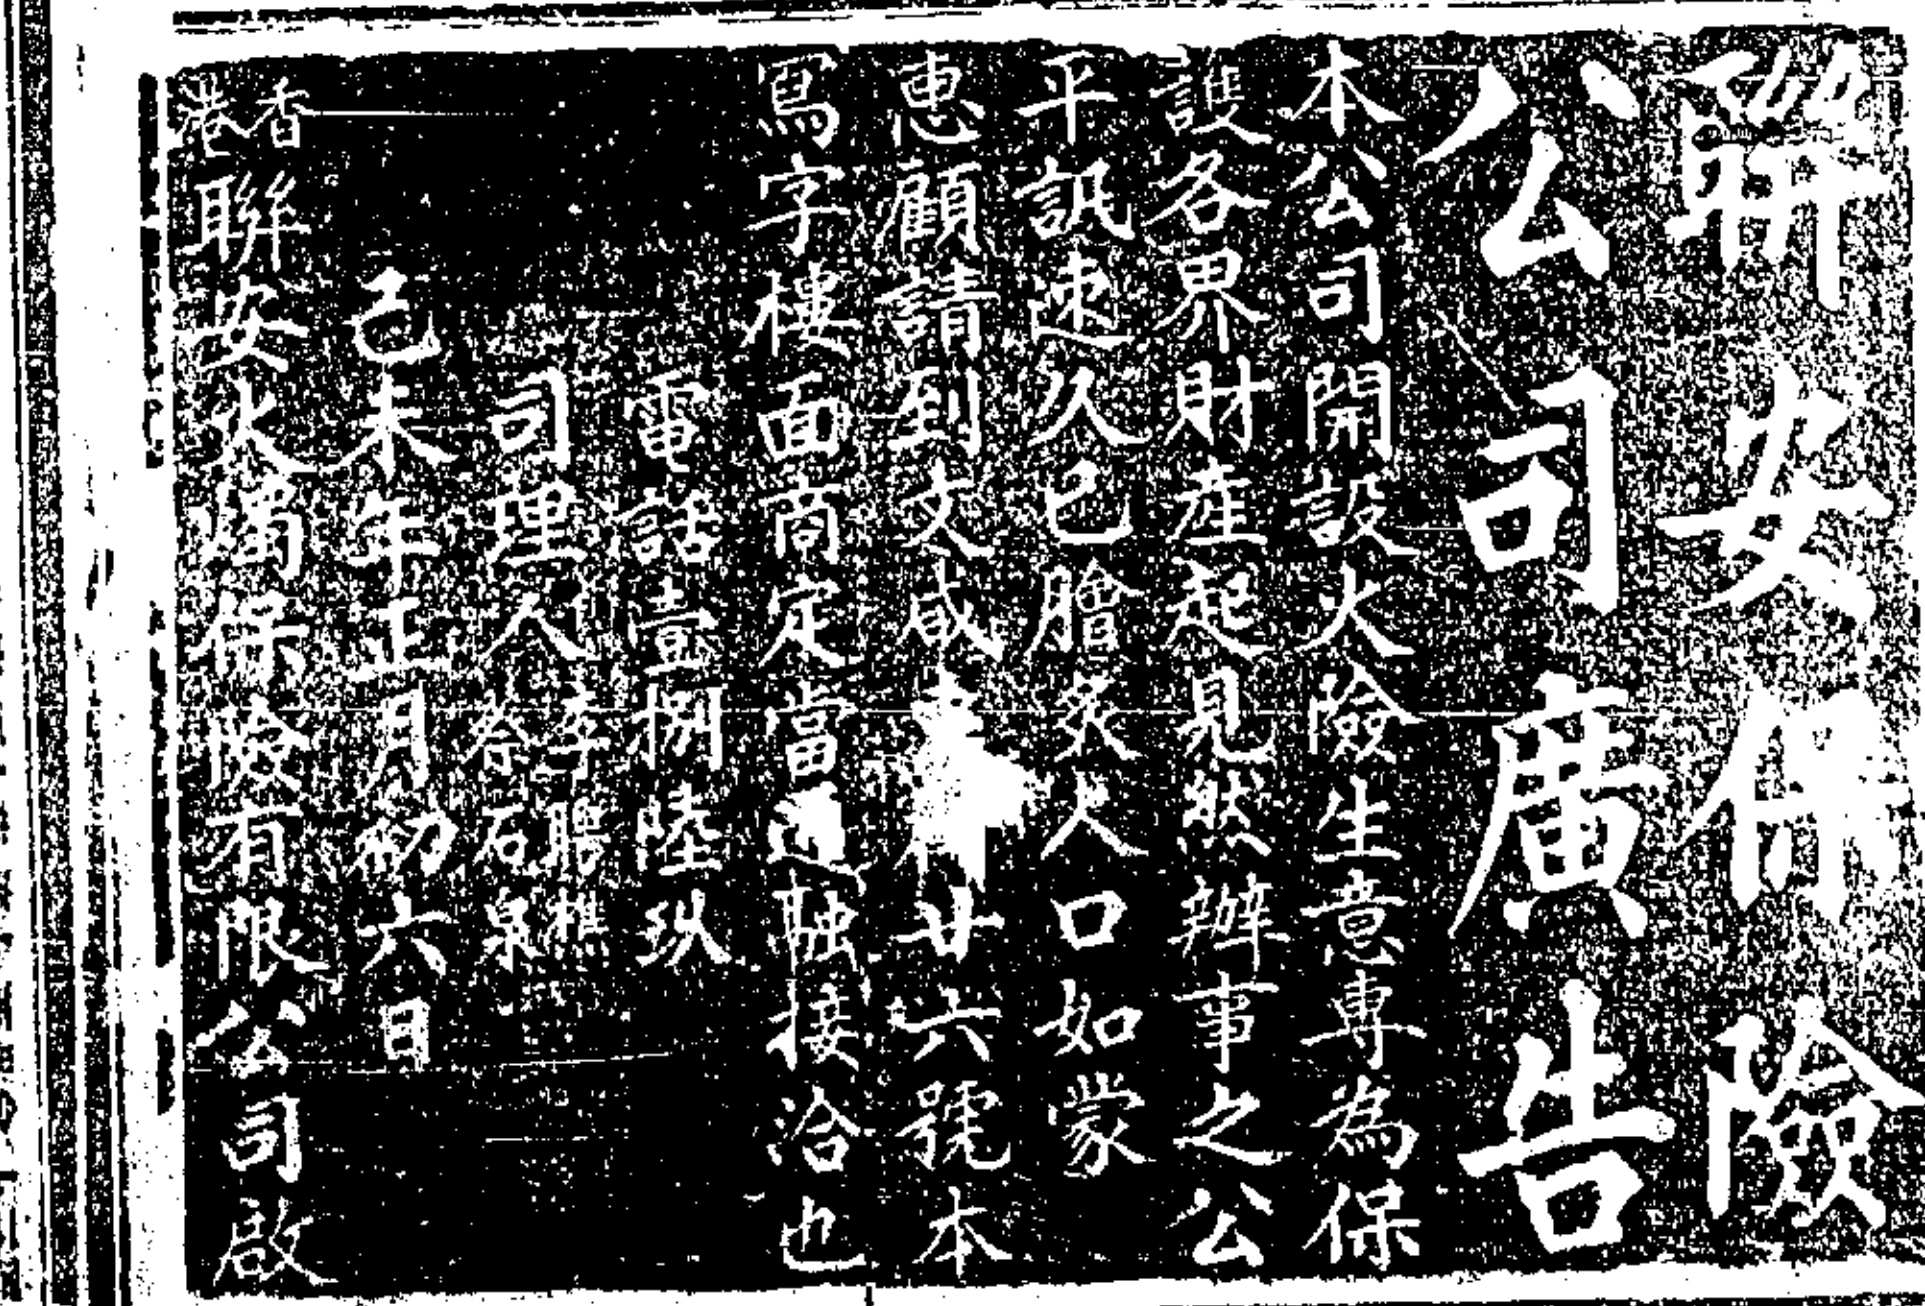 聯安保險
公司廣告
本公司開設火險生意專為保
護各界財產起見然辦事之公
平訊速久已膾炙人口如蒙
惠顧請到文咸廿六號本
寫字樓面商定當通融接洽也
電話壹捌陸玖
司理人
李聘樵
蔡石泉
己未年正月初六日
香港聯安火燭保險有限公司啟